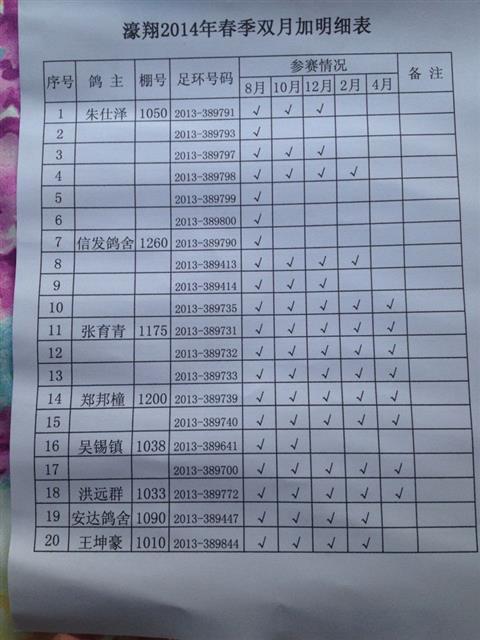 濠翔2014年春季双月加明细表
序号 鸽主 棚号 足环号码 参赛情况 备注
8月 10月 12月 2月 4月
1 朱仕泽 1050 2013-389791 √ √ √
2 2013-389793 √
3 2013-389797 √ √ √
4 2013-389798 √ √ √ √
5 2013-389799 √
6 2013-389800 √
7 信发鸽舍 1260 2013-389790 √
8 2013-389413 √ √ √ √
9 2013-389414 √ √ √
10 2013-389735 √ √ √ √ √
11 张育青 1175 2013-389731 √ √ √ √ √
12 2013-389732 √ √ √ √ √
13 2013-389733 √ √ √ √ √
14 郑邦橦 1200 2013-389739 √ √ √ √ √
15 2013-389740 √ √ √ √ √
16 吴锡镇 1038 2013-389641 √ √
17 2013-389700 √ √ √ √ √
18 洪远群 1033 2013-389772 √ √ √ √ √
19 安达鸽舍 1090 2013-389447 √ √ √ √
20 王坤豪 1010 2013-389844 √ √ √ √